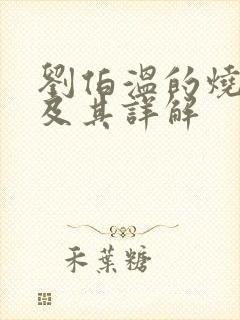 劉伯溫的燒
及其詳解
禾葉糖